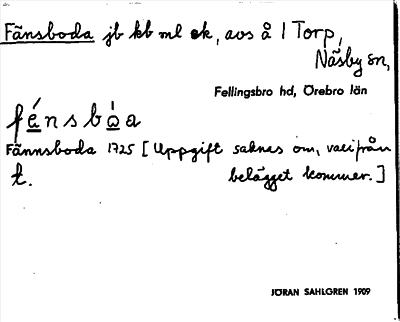 Fänsboda jb kb ml ek, avs å 1 Torp,
Näsby sn,
Fellingsbro hd, Örebro län
fénsbòa
Fännsboda 1725 [Uppgift saknas om, varifrån
t. belägget kommer.]
JÖRAN SAHLGREN 1909